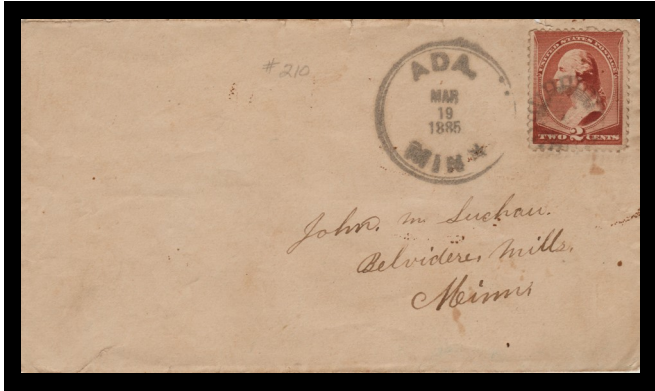 # 210
ADA,
MAR
19
1885
MIN
UNITED STATES POSTAGE
TWO 2 CENTS
John. M Suchau.
Belvidere, Mills.
Minns